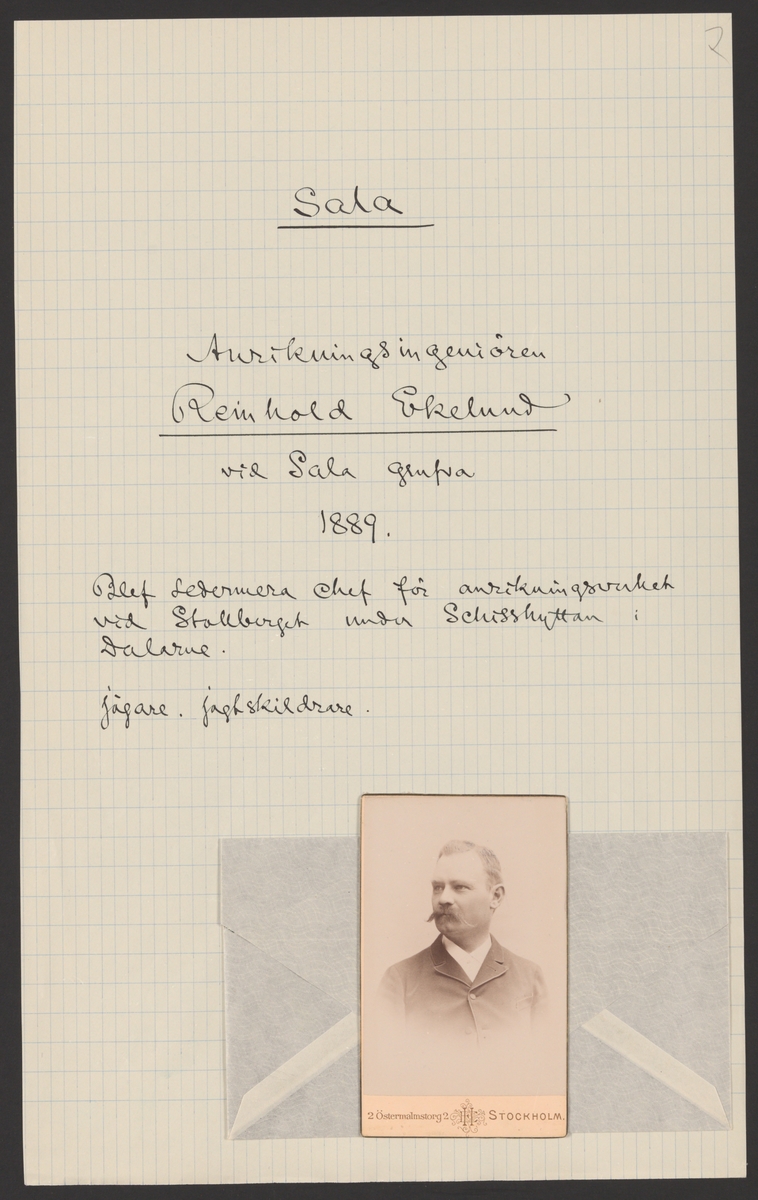 2
Sala
Anrikningsingeniören
Reinhold Ekelund
vid Sala grufva
1889.
Blef sedermera chef för anrikningsverket
vid Stollberget under Schisshyttan i
Dalarne.
jägare. jagtskildrare.
2 Östermalmstorg 2 STOCKHOLM.